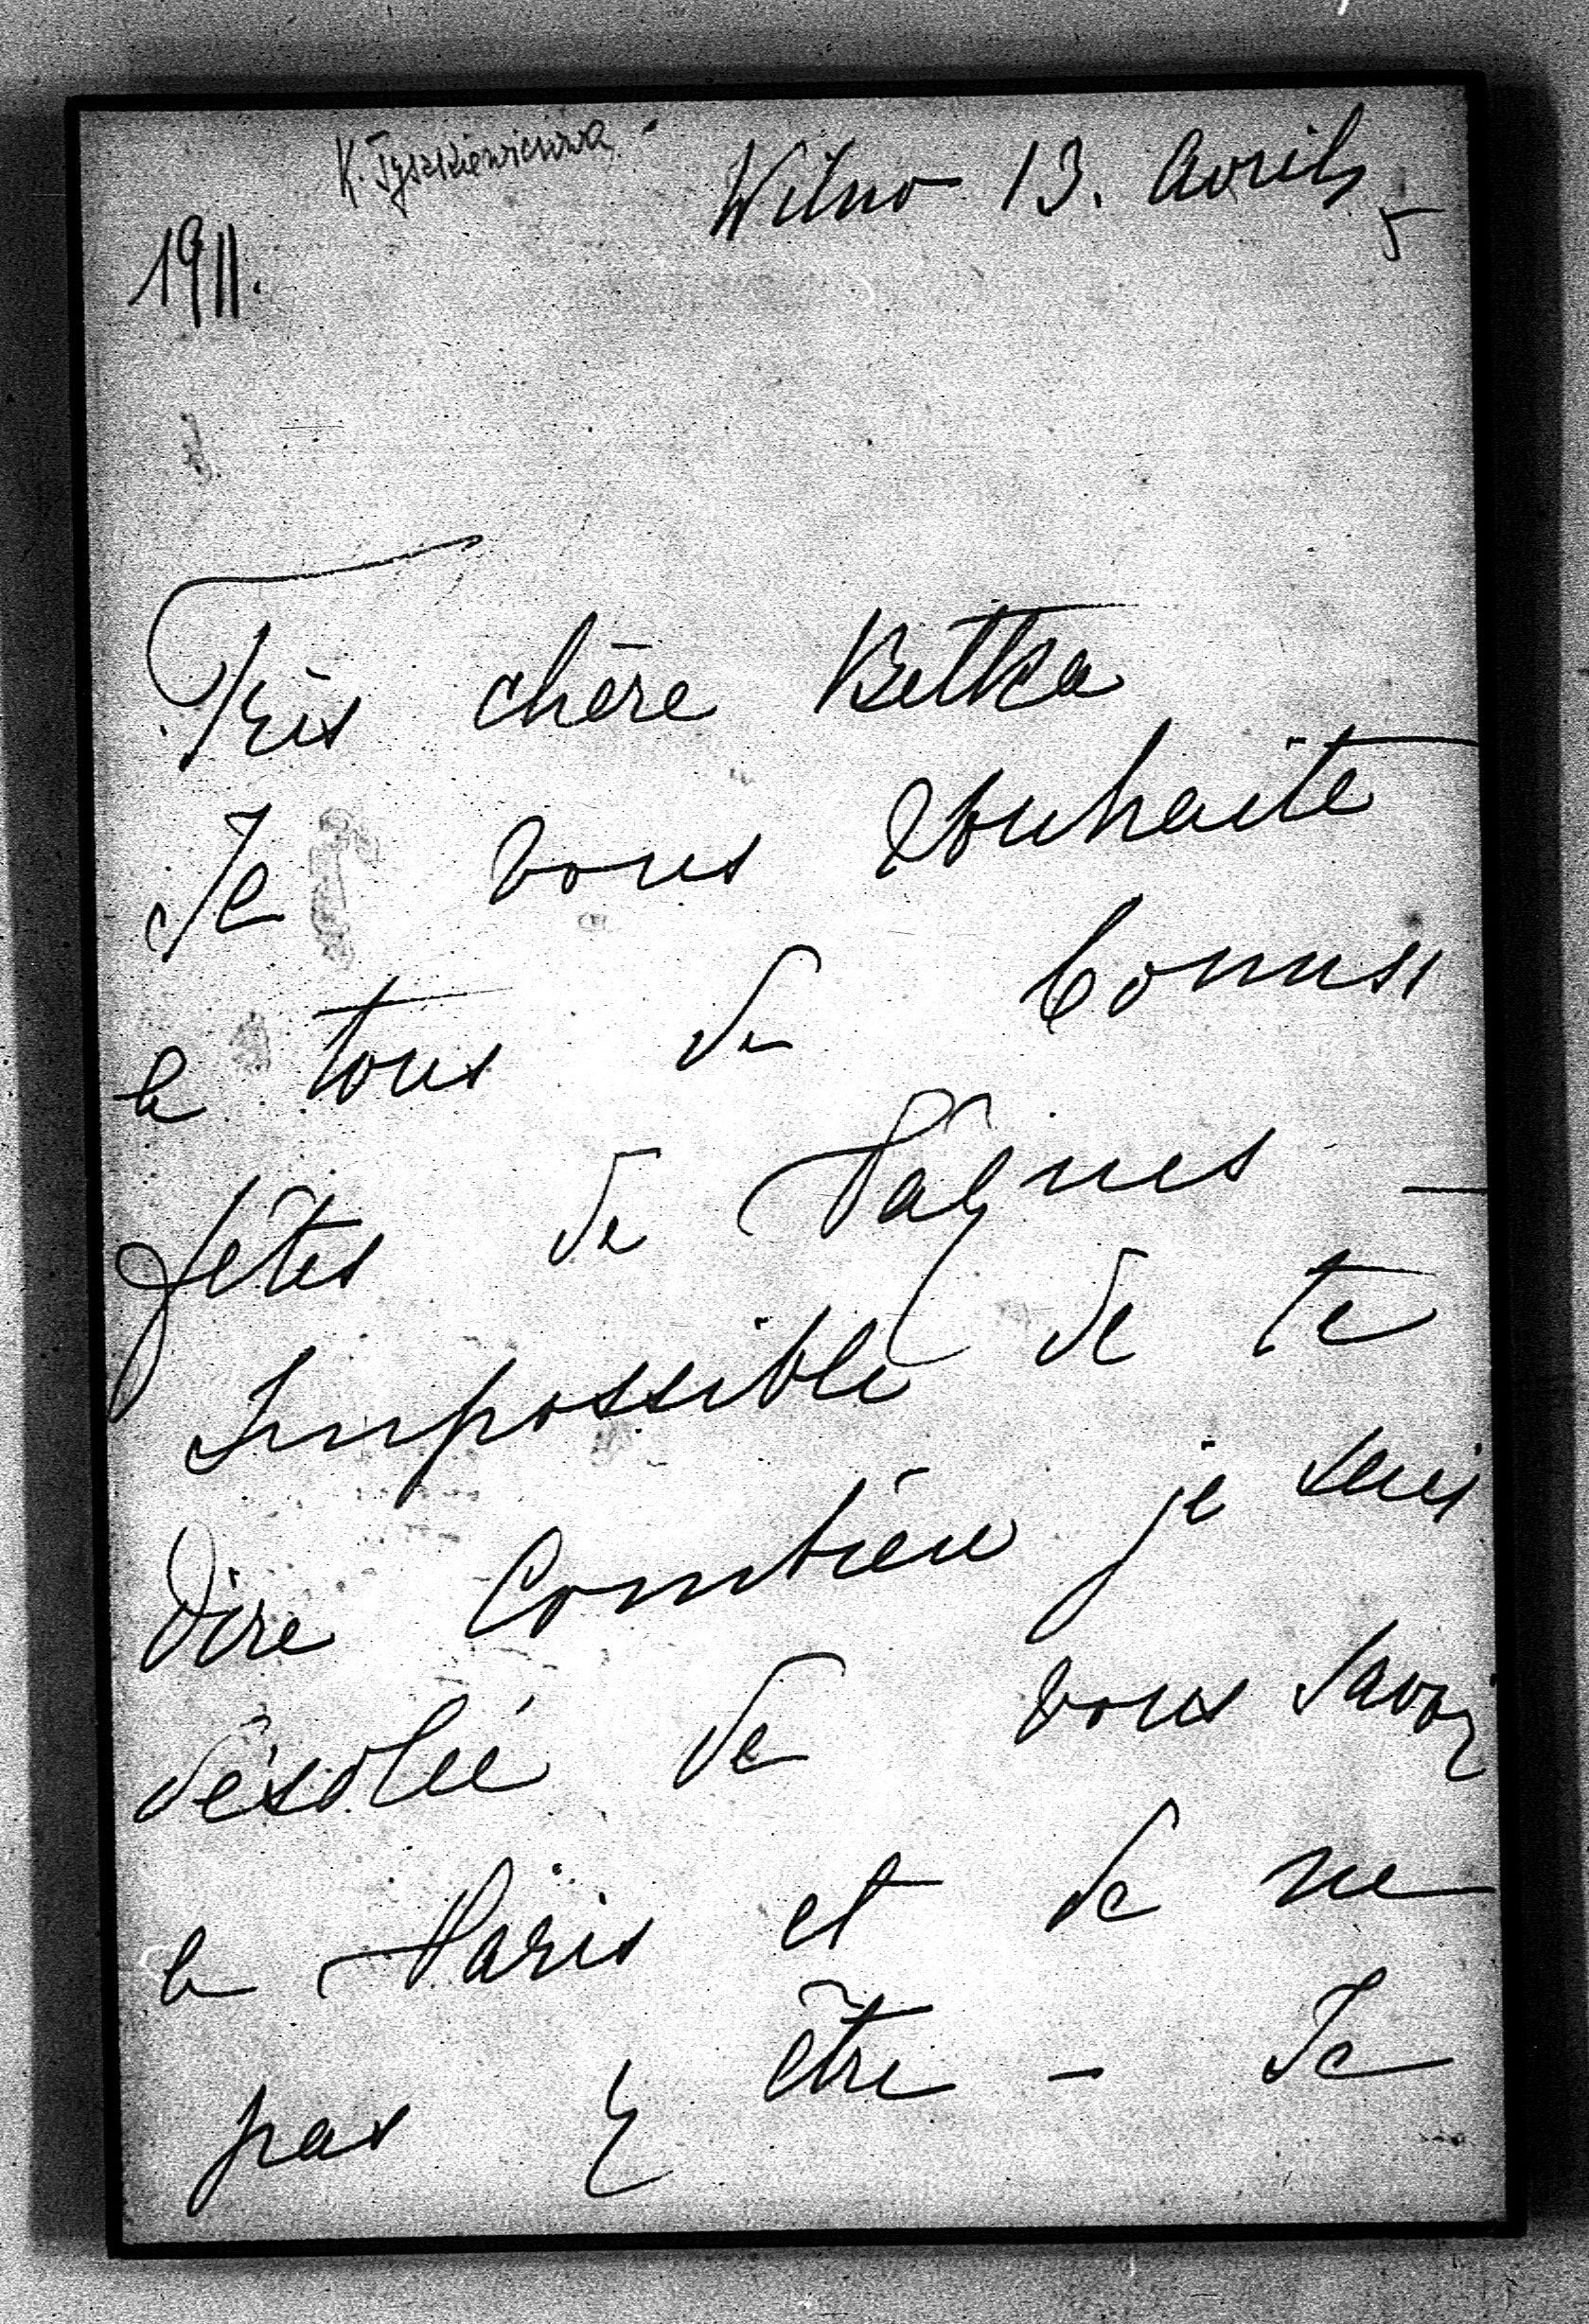 K. Tyszkiewiczowa
Wilno 13. Avril
1911.
Très chère Betka
Je vous souhaite
à tous de bonnes
fêtes de Pâques —
Impossible de te
dire combien je suis
désolée de vous savoir
à Paris et de ne
pas y être — Je